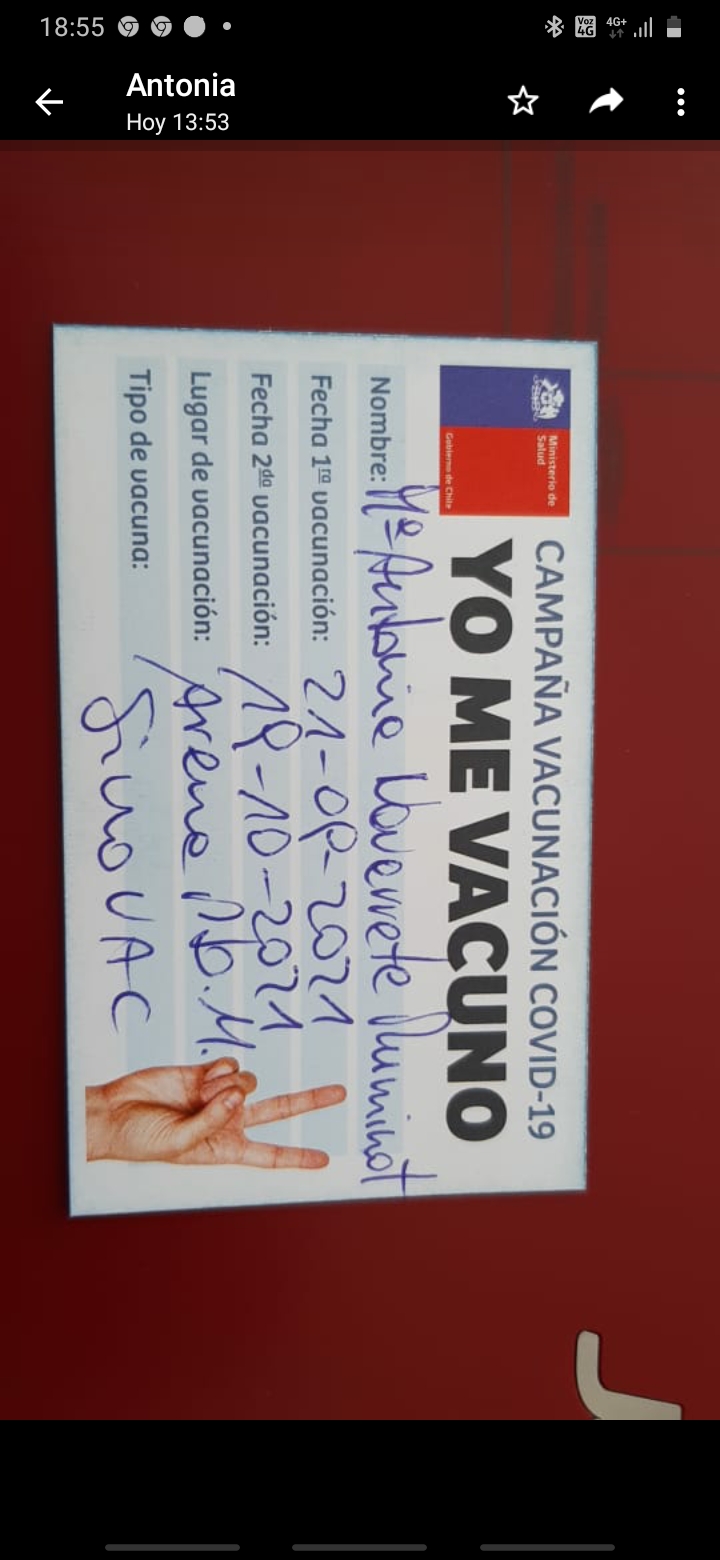 18:55
Voz 4G
4G+
Antonia
Hoy 13:53
Ministerio de
Salud
Gobierno de Chile
CAMPAÑA VACUNACIÓN COVID-19
YO ME VACUNO
Nombre: Mª Antonia Navarrete
Fecha 1ra vacunación: 21-09-2021
Fecha 2da vacunación: 19-10-2021
Lugar de vacunación: Arena Pto. M.
Tipo de vacuna: SinoVAC